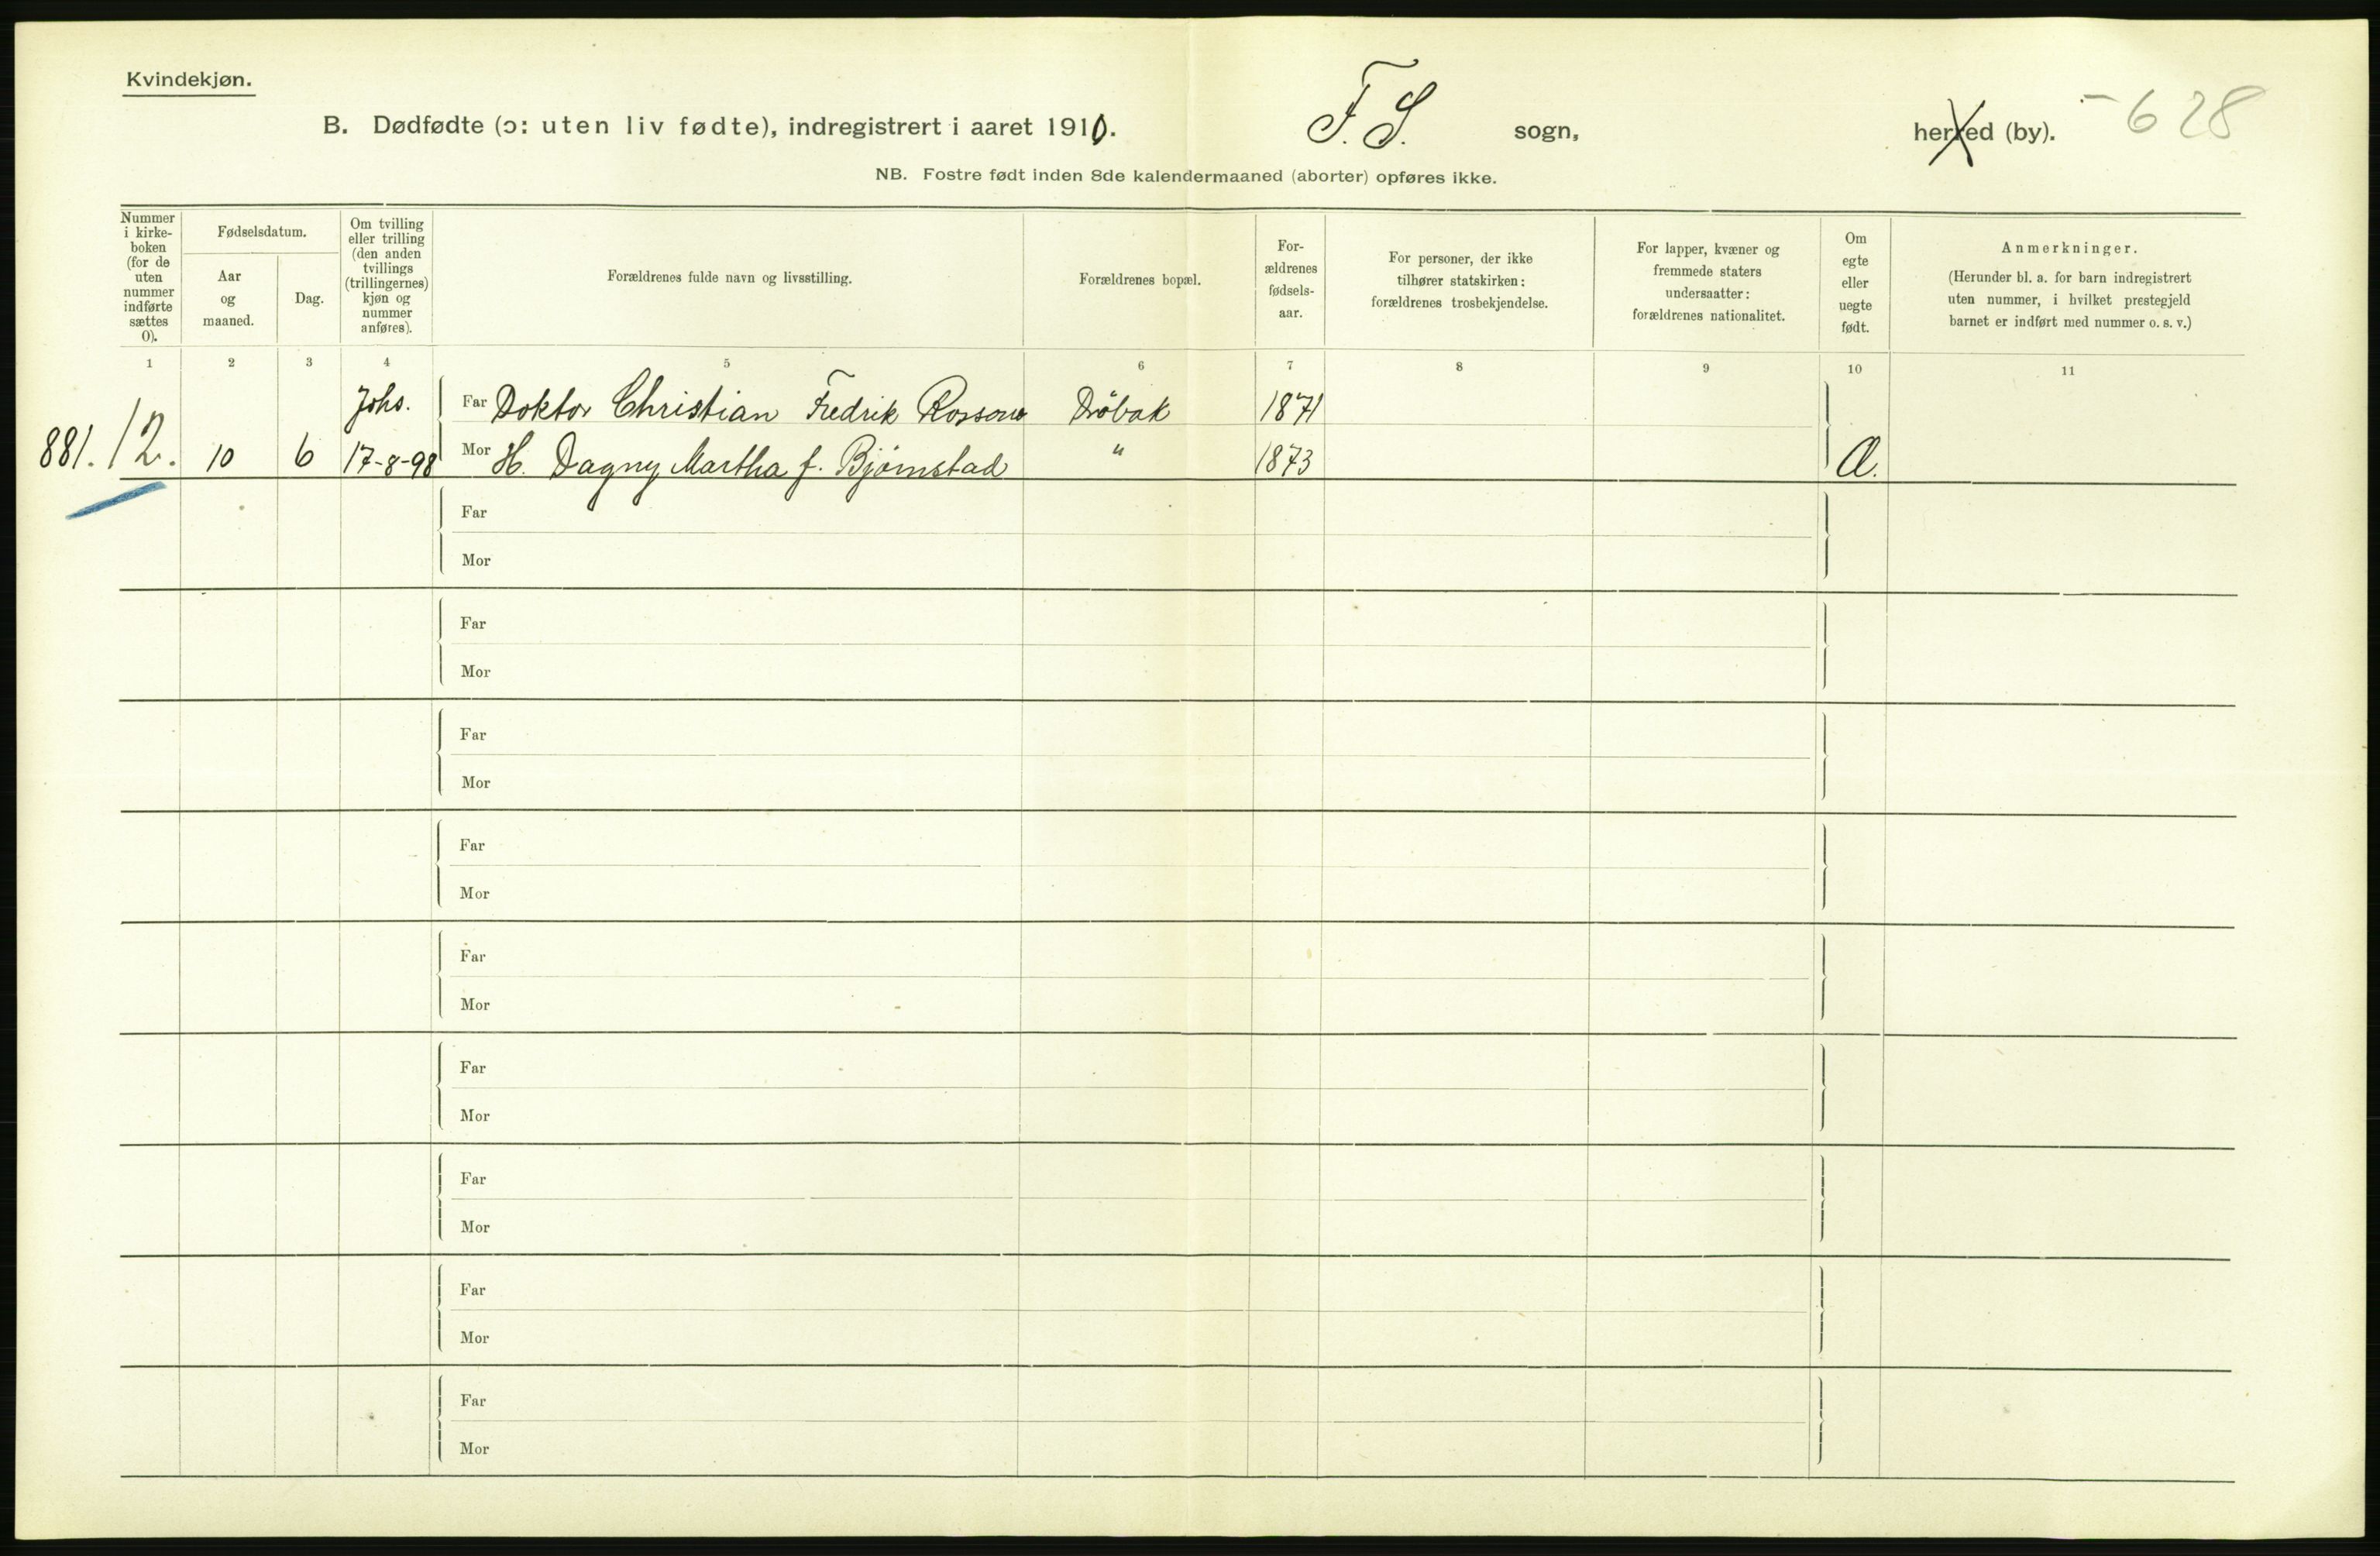 Kvindekjøn.
B. Dødfødte (ɔ: uten liv fødte), indregistrert i aaret 1910. F. S. sogn, herred (by). -628
NB. Fostre født inden 8de kalendermaaned (aborter) opføres ikke.
Nummer i kirke-boken (for de uten nummer indførte sættes 0).
Fødselsdatum.
Aar og maaned.
Dag.
Om tvilling eller trilling (den anden tvillings (trillingernes) kjøn og nummer anføres).
Forældrenes fulde navn og livsstilling.
Forældrenes bopæl.
For-ældrenes fødsels-aar.
For personer, der ikke tilhører statskirken: forældrenes trosbekjendelse.
For lapper, kvæner og fremmede staters undersaatter: forældrenes nationalitet.
Om egte eller uegte født.
Anmerkninger.
(Herunder bl. a. for barn indregistrert uten nummer, i hvilket prestegjeld barnet er indført med nummer o. s. v.)
1 2 3 4 5 6 7 8 9 10 11
Johs. Far Doktor Christian Fredrik Drøbak 1871
881. 12. 10 6 17-8-98 Mor H. Dagny Martha f. Bjørnstad " 1873 Æ.
Far
Mor
Far
Mor
Far
Mor
Far
Mor
Far
Mor
Far
Mor
Far
Mor
Far
Mor
Far
Mor